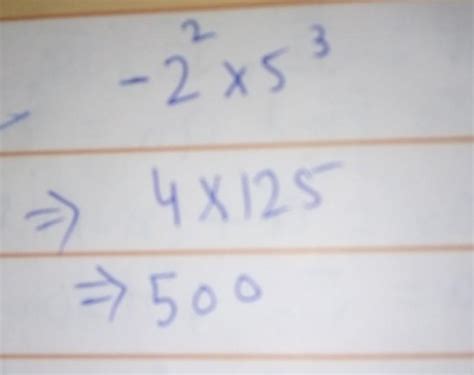 -2² × 5³
⇒ 4 × 125
⇒ 500